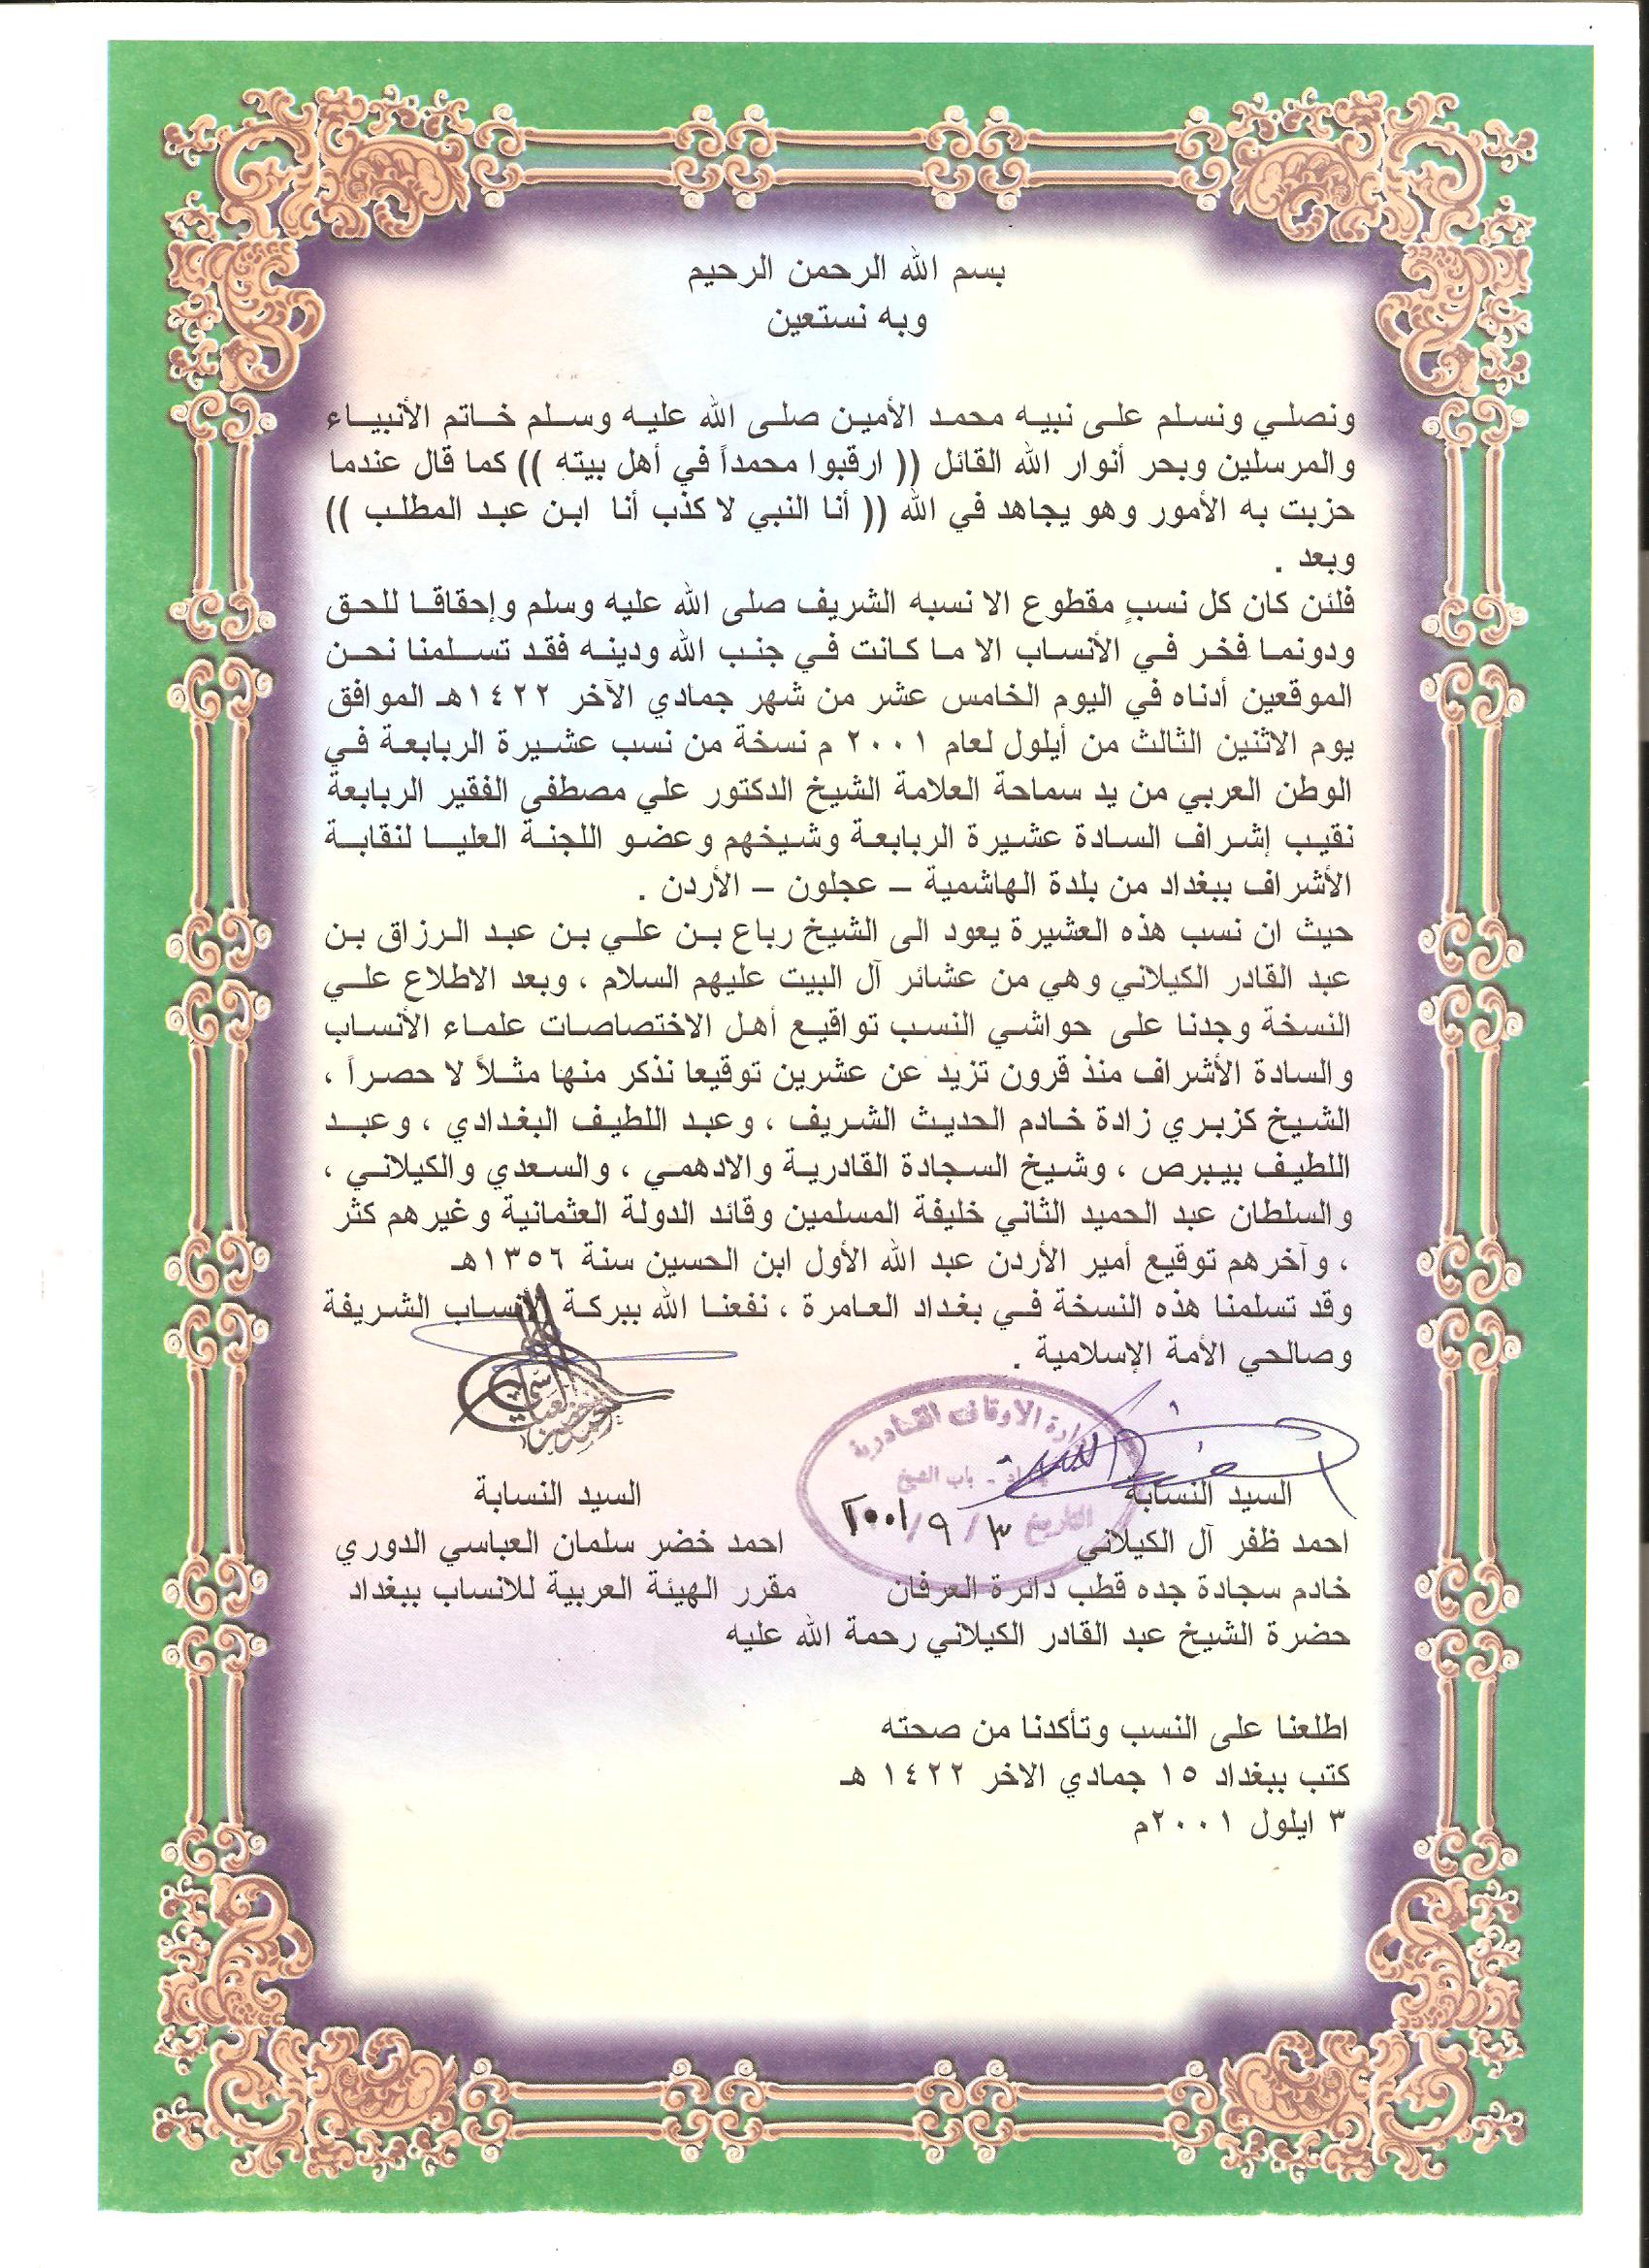 بسم الله الرحمن الرحيم
وبه نستعين
ونصلي ونسلم على نبيه محمد الأمين صلى الله عليه وسلم خاتم الأنبياء
والمرسلين وبحر أنوار الله القائل (( ارقبوا محمداً في أهل بيته )) كما قال عندما
حزبت به الأمور وهو يجاهد في الله (( أنا النبي لا كذب أنا ابن عبد المطلب ))
وبعد .
فلئن كان كل نسبٍ مقطوع الا نسبه الشريف صلى الله عليه وسلم وإحقاقا للحق
ودونما فخر في الأنساب الا ما كانت في جنب الله ودينه فقد تسلمنا نحن
الموقعين أدناه في اليوم الخامس عشر من شهر جمادي الآخر ١٤٢٢هـ الموافق
يوم الاثنين الثالث من أيلول لعام ٢٠٠١ م نسخة من نسب عشيرة الربابعة في
الوطن العربي من يد سماحة العلامة الشيخ الدكتور علي مصطفى الفقير الربابعة
نقيب إشراف السادة عشيرة الربابعة وشيخهم وعضو اللجنة العليا لنقابة
الأشراف ببغداد من بلدة الهاشمية – عجلون – الأردن .
حيث ان نسب هذه العشيرة يعود الى الشيخ رباع بن علي بن عبد الرزاق بن
عبد القادر الكيلاني وهي من عشائر آل البيت عليهم السلام ، وبعد الاطلاع علي
النسخة وجدنا على حواشي النسب تواقيع أهل الاختصاصات علماء الأنساب
والسادة الأشراف منذ قرون تزيد عن عشرين توقيعا نذكر منها مثلاً لا حصراً ،
الشيخ كزبري زادة خادم الحديث الشريف ، وعبد اللطيف البغدادي ، وعبد
اللطيف بيبرص ، وشيخ السجادة القادرية والادهمي ، والسعدي والكيلاني ،
والسلطان عبد الحميد الثاني خليفة المسلمين وقائد الدولة العثمانية وغيرهم كثر
، وآخرهم توقيع أمير الأردن عبد الله الأول ابن الحسين سنة ١٣٥٦هـ
وقد تسلمنا هذه النسخة في بغداد العامرة ، نفعنا الله ببركة الأنساب الشريفة
وصالحي الأمة الإسلامية .
الاوقاف القادرية
باب الشيخ
التاريخ ٣ / ٩ / ٢٠٠١
السيد النسابة
احمد ظفر آل الكيلاني
خادم سجادة جده قطب دائرة العرفان
حضرة الشيخ عبد القادر الكيلاني رحمة الله عليه
السيد النسابة
احمد خضر سلمان العباسي الدوري
مقرر الهيئة العربية للانساب ببغداد
اطلعنا على النسب وتأكدنا من صحته
كتب ببغداد ١٥ جمادي الاخر ١٤٢٢ هـ
٣ ايلول ٢٠٠١م